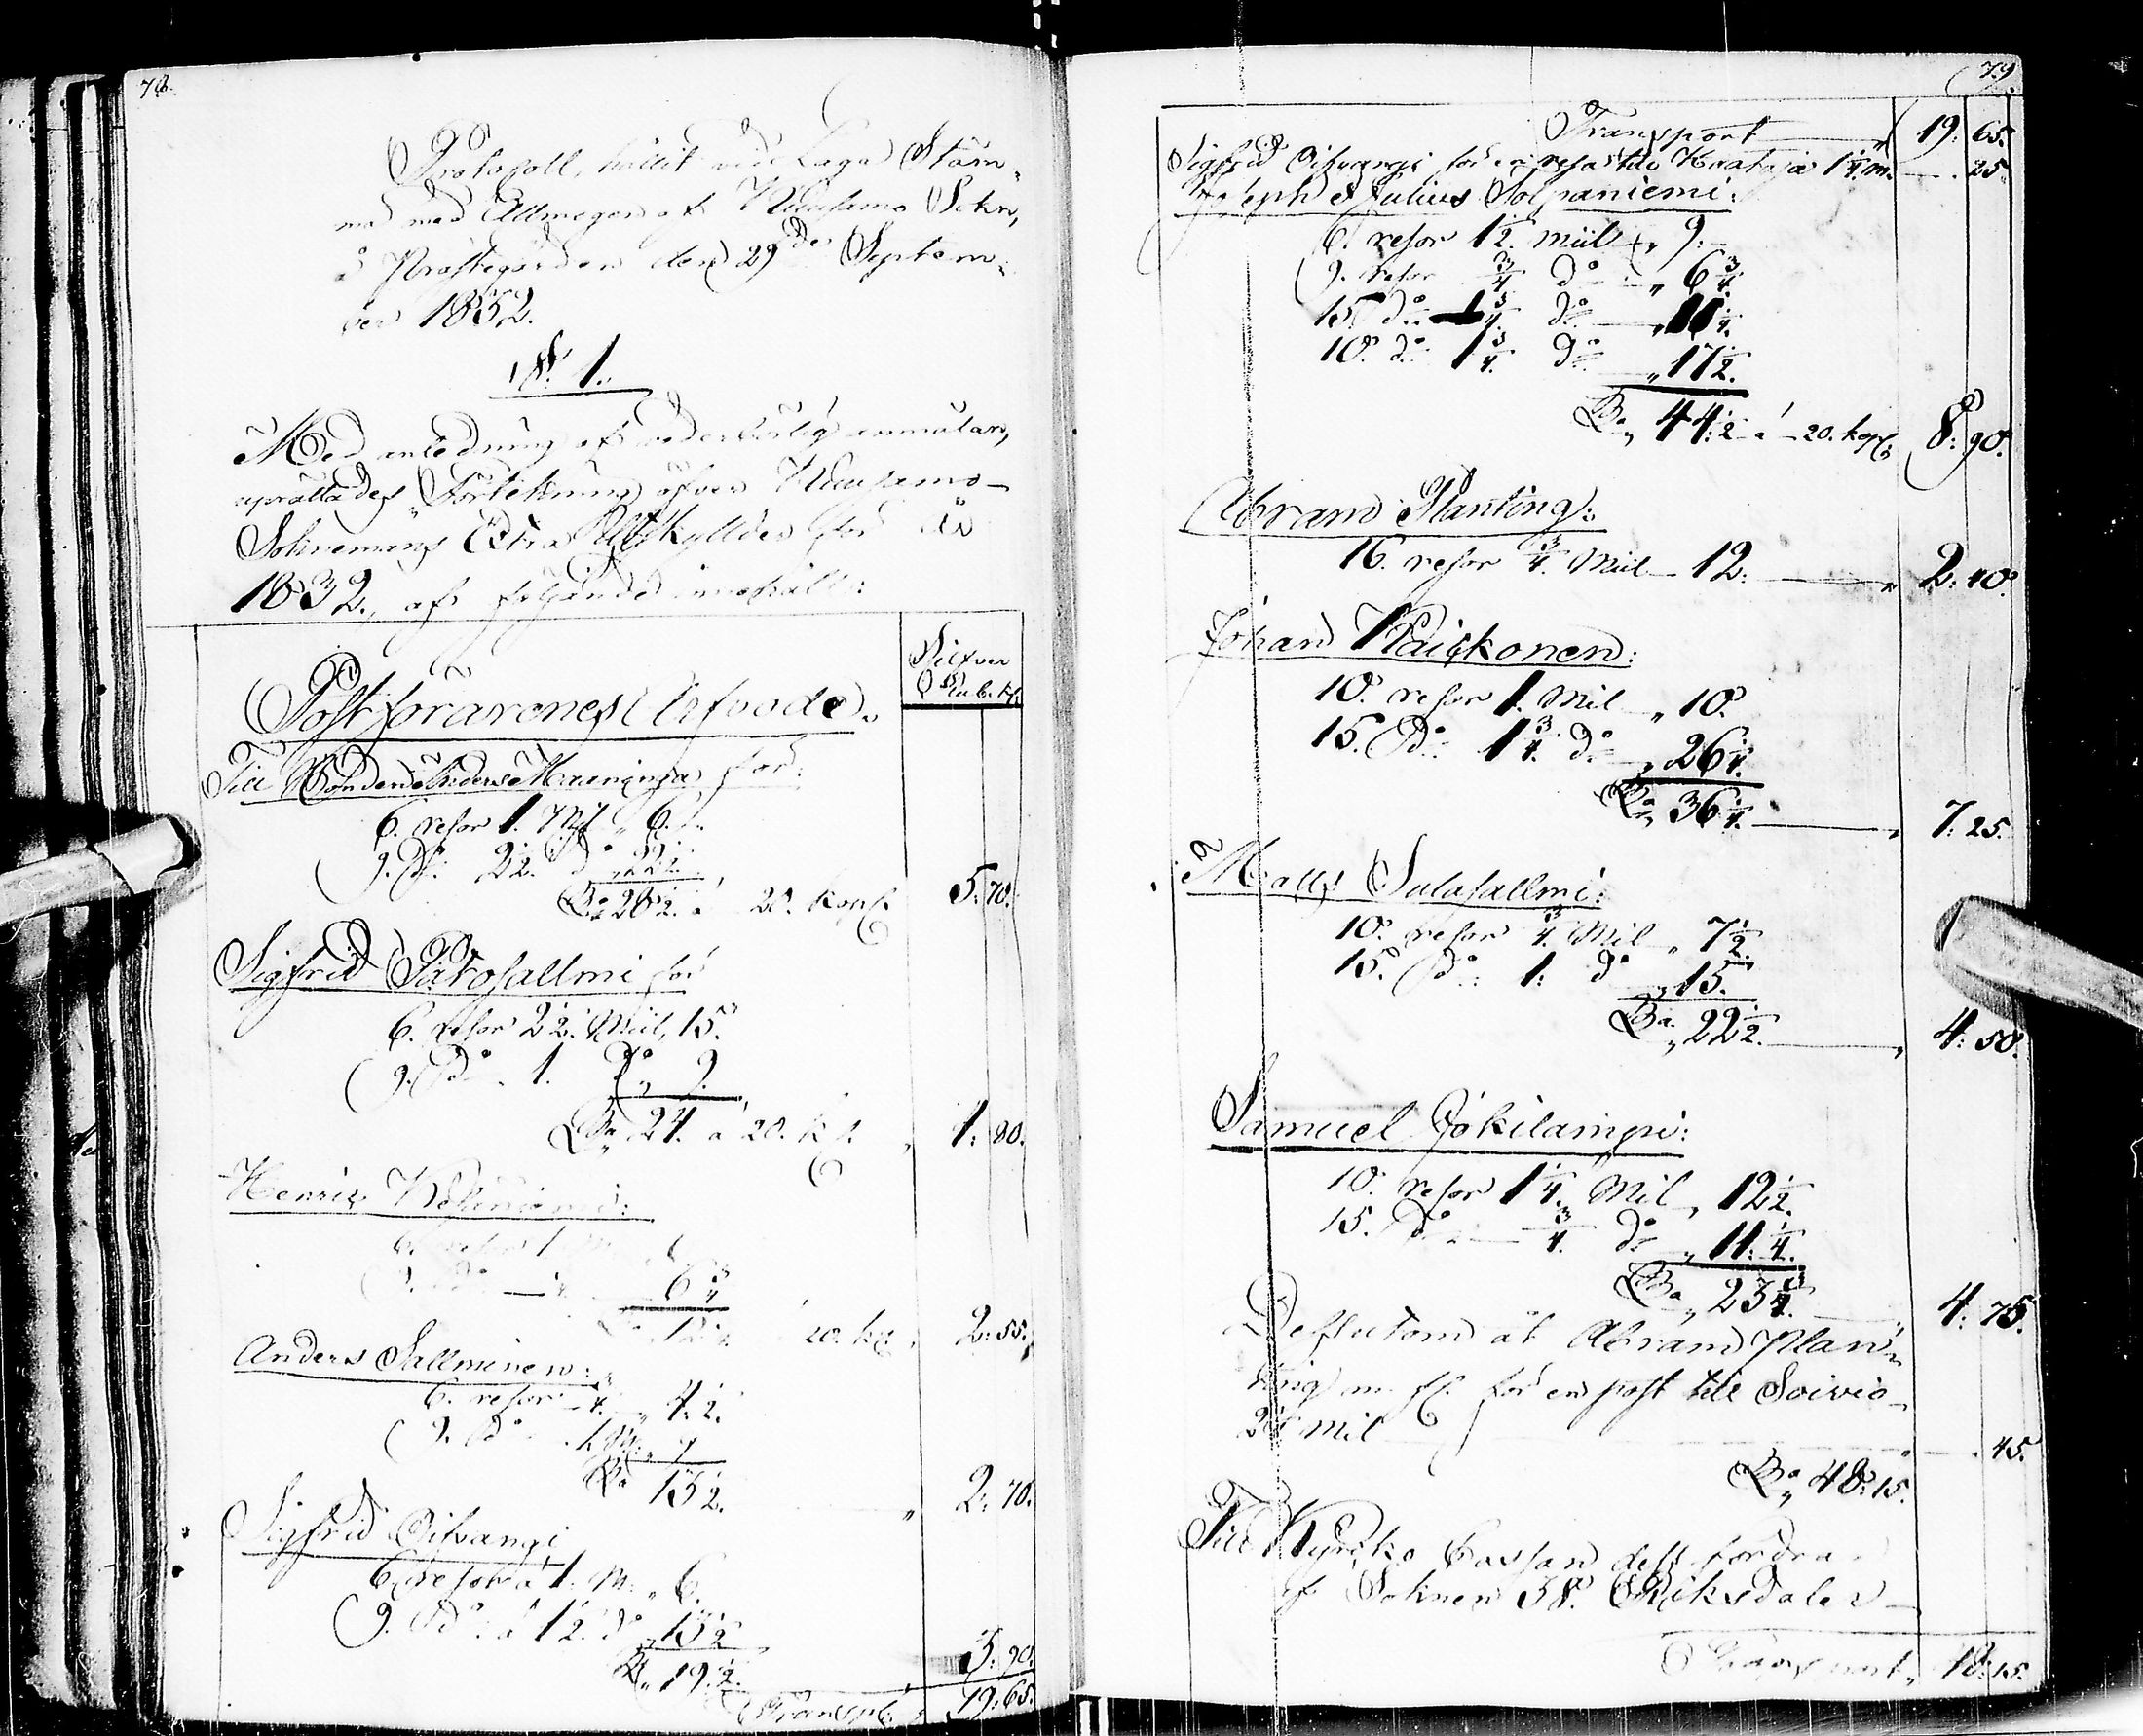 78.
Protokoll, hållit vid Laga Stäm-
ma med Allmogen af Kuusamo Sokn,
å Prästegården den 29de Septem-
ber 1832.
§ 1.
Med anledning af vederbörlig anmälan,
uprättades Förtekning öfver Kuusamo
Soknemäns Extra Utskyllder för år
1832., af följande innehåll:
Silfver
Rub. K.
Postförarenes Arfvode.
Till Bonden Anders Mauninga för:
6. resor 1. Mil „ 6.
9. Do: 2½. do „ 22½.
Sa 28½. á 20. kop. 5: 70.
Sigfrid Patosallmi för
6. resor 2½. Mil, 15.
9. Do 1. Do „ 9.
Sa 24. á 20. k. „ 4: 80.
Henric
6. resor 1. M 6
9. Do 6¾
20. k. 2: 55.
Anders Sallminen:
6. resor ¾. „ 4½.
9. Do 1. M. „ 9
Sa 13½. „ 2: 70.
Sigfrid Oifvangi
6. resor á 1. M. „ 6.
9. Do á 1½. do „ 13½
Sa 19½. 3: 90.
Transp. 19: 65.
79.
Transport 19: 65.
Sigfrid Oifvangi för en resa till Kurtaja 1¼. m. 25.
Joseph & Julius Solpaniemi:
6. resor 1½. Mil „ 9.
9. resor ¾ do „ 6¾.
15. do ¾. do „ 11¼.
10. do 1¾. do „ 17½.
Sa 44½ á 20. kop. 8: 90.
Abram Planting:
16. resor ¾. Mil 12. „ 2: 40.
Johan Kaickonen:
10. resor 1. Mil „ 10.
15. Do 1¾. do „ 26¼.
Sa 36¼. „ 7: 25.
Matts Sulasallmi:
10. resor ¾. Mil „ 7½.
15. Do: 1: do „ 15.
Sa „ 22½. „ 4: 50.
Samuel Jokilampi:
10. resor 1¼. Mil „ 12½.
15. Do ¾. do „ 11¼.
Sa „ 23¾. 4: 75.
Dessutom åt Abram Plan-
ting m. fl. för en post till Soivio
2¼ Mil . 45.
Sa 48: 15.
Till Kyrko Cassan dess fordra
af Soknen 38. Riksdaler
Transport „ 48: 15.